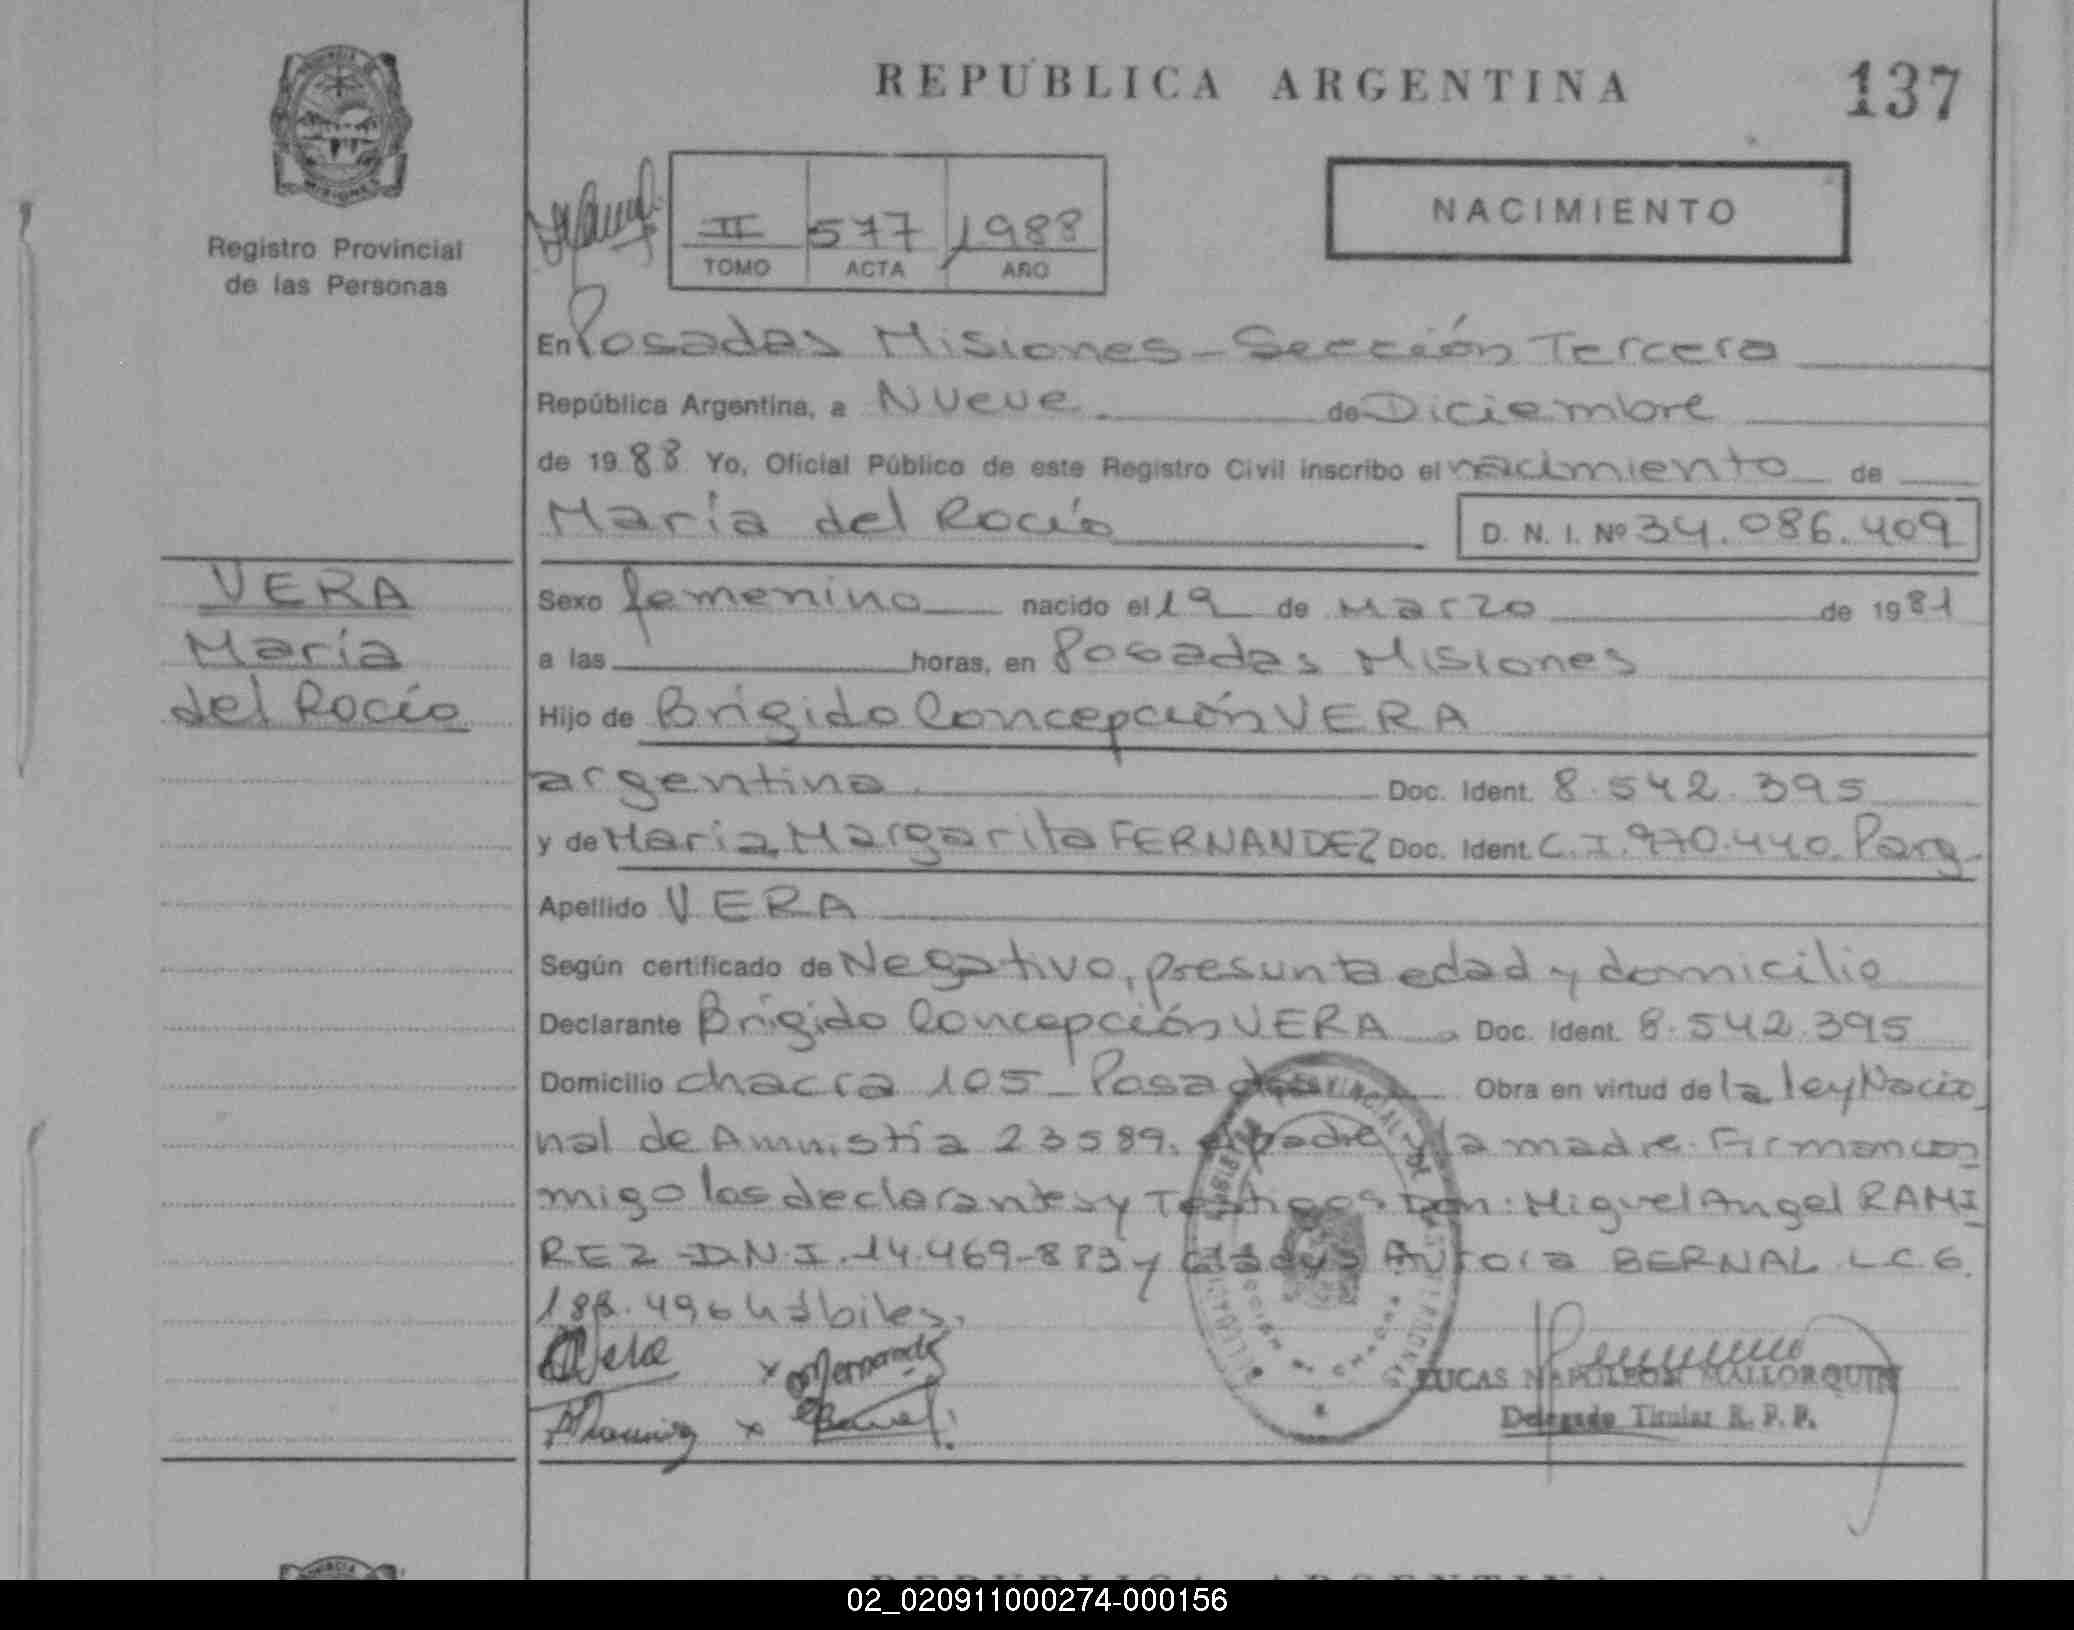 REPUBLICA ARGENTINA
137
MISIONES
Registro Provincial
de las Personas
II 577 1988
TOMO ACTA AÑO
NACIMIENTO
En Posadas Misiones - Sección Tercera
República Argentina, a Nueve de Diciembre
de 1988 Yo, Oficial Público de este Registro Civil inscribo el nacimiento de
María del Rocío
D. N. I. Nº 34.086.409
VERA
María
del Rocío
Sexo femenino nacido el 19 de Marzo de 1981
a las horas, en Posadas Misiones
Hijo de Brígido Concepción VERA
argentino Doc. Ident. 8.542.395
y de María Margarita FERNANDEZ Doc. Ident. C.I. 970.440. Parg.
Apellido VERA
Según certificado de Negativo, presunta edad y domicilio
Declarante Brígido Concepción VERA Doc. Ident. 8.542.395
Domicilio chacra 105 Posadas Obra en virtud de la ley Nacio
nal de Amnistía 23589. El padre y la madre. Firman con
migo los declarantes y Testigos Don: Miguel Angel RAMI
REZ - D.N.I. 14.469-883 y Gladys Aurora BERNAL L.C. 6.
188.496 hábiles.
LUCAS NAPOLEON MALLORQUIN
Delegado Titular R. P. P.
02_020911000274-000156